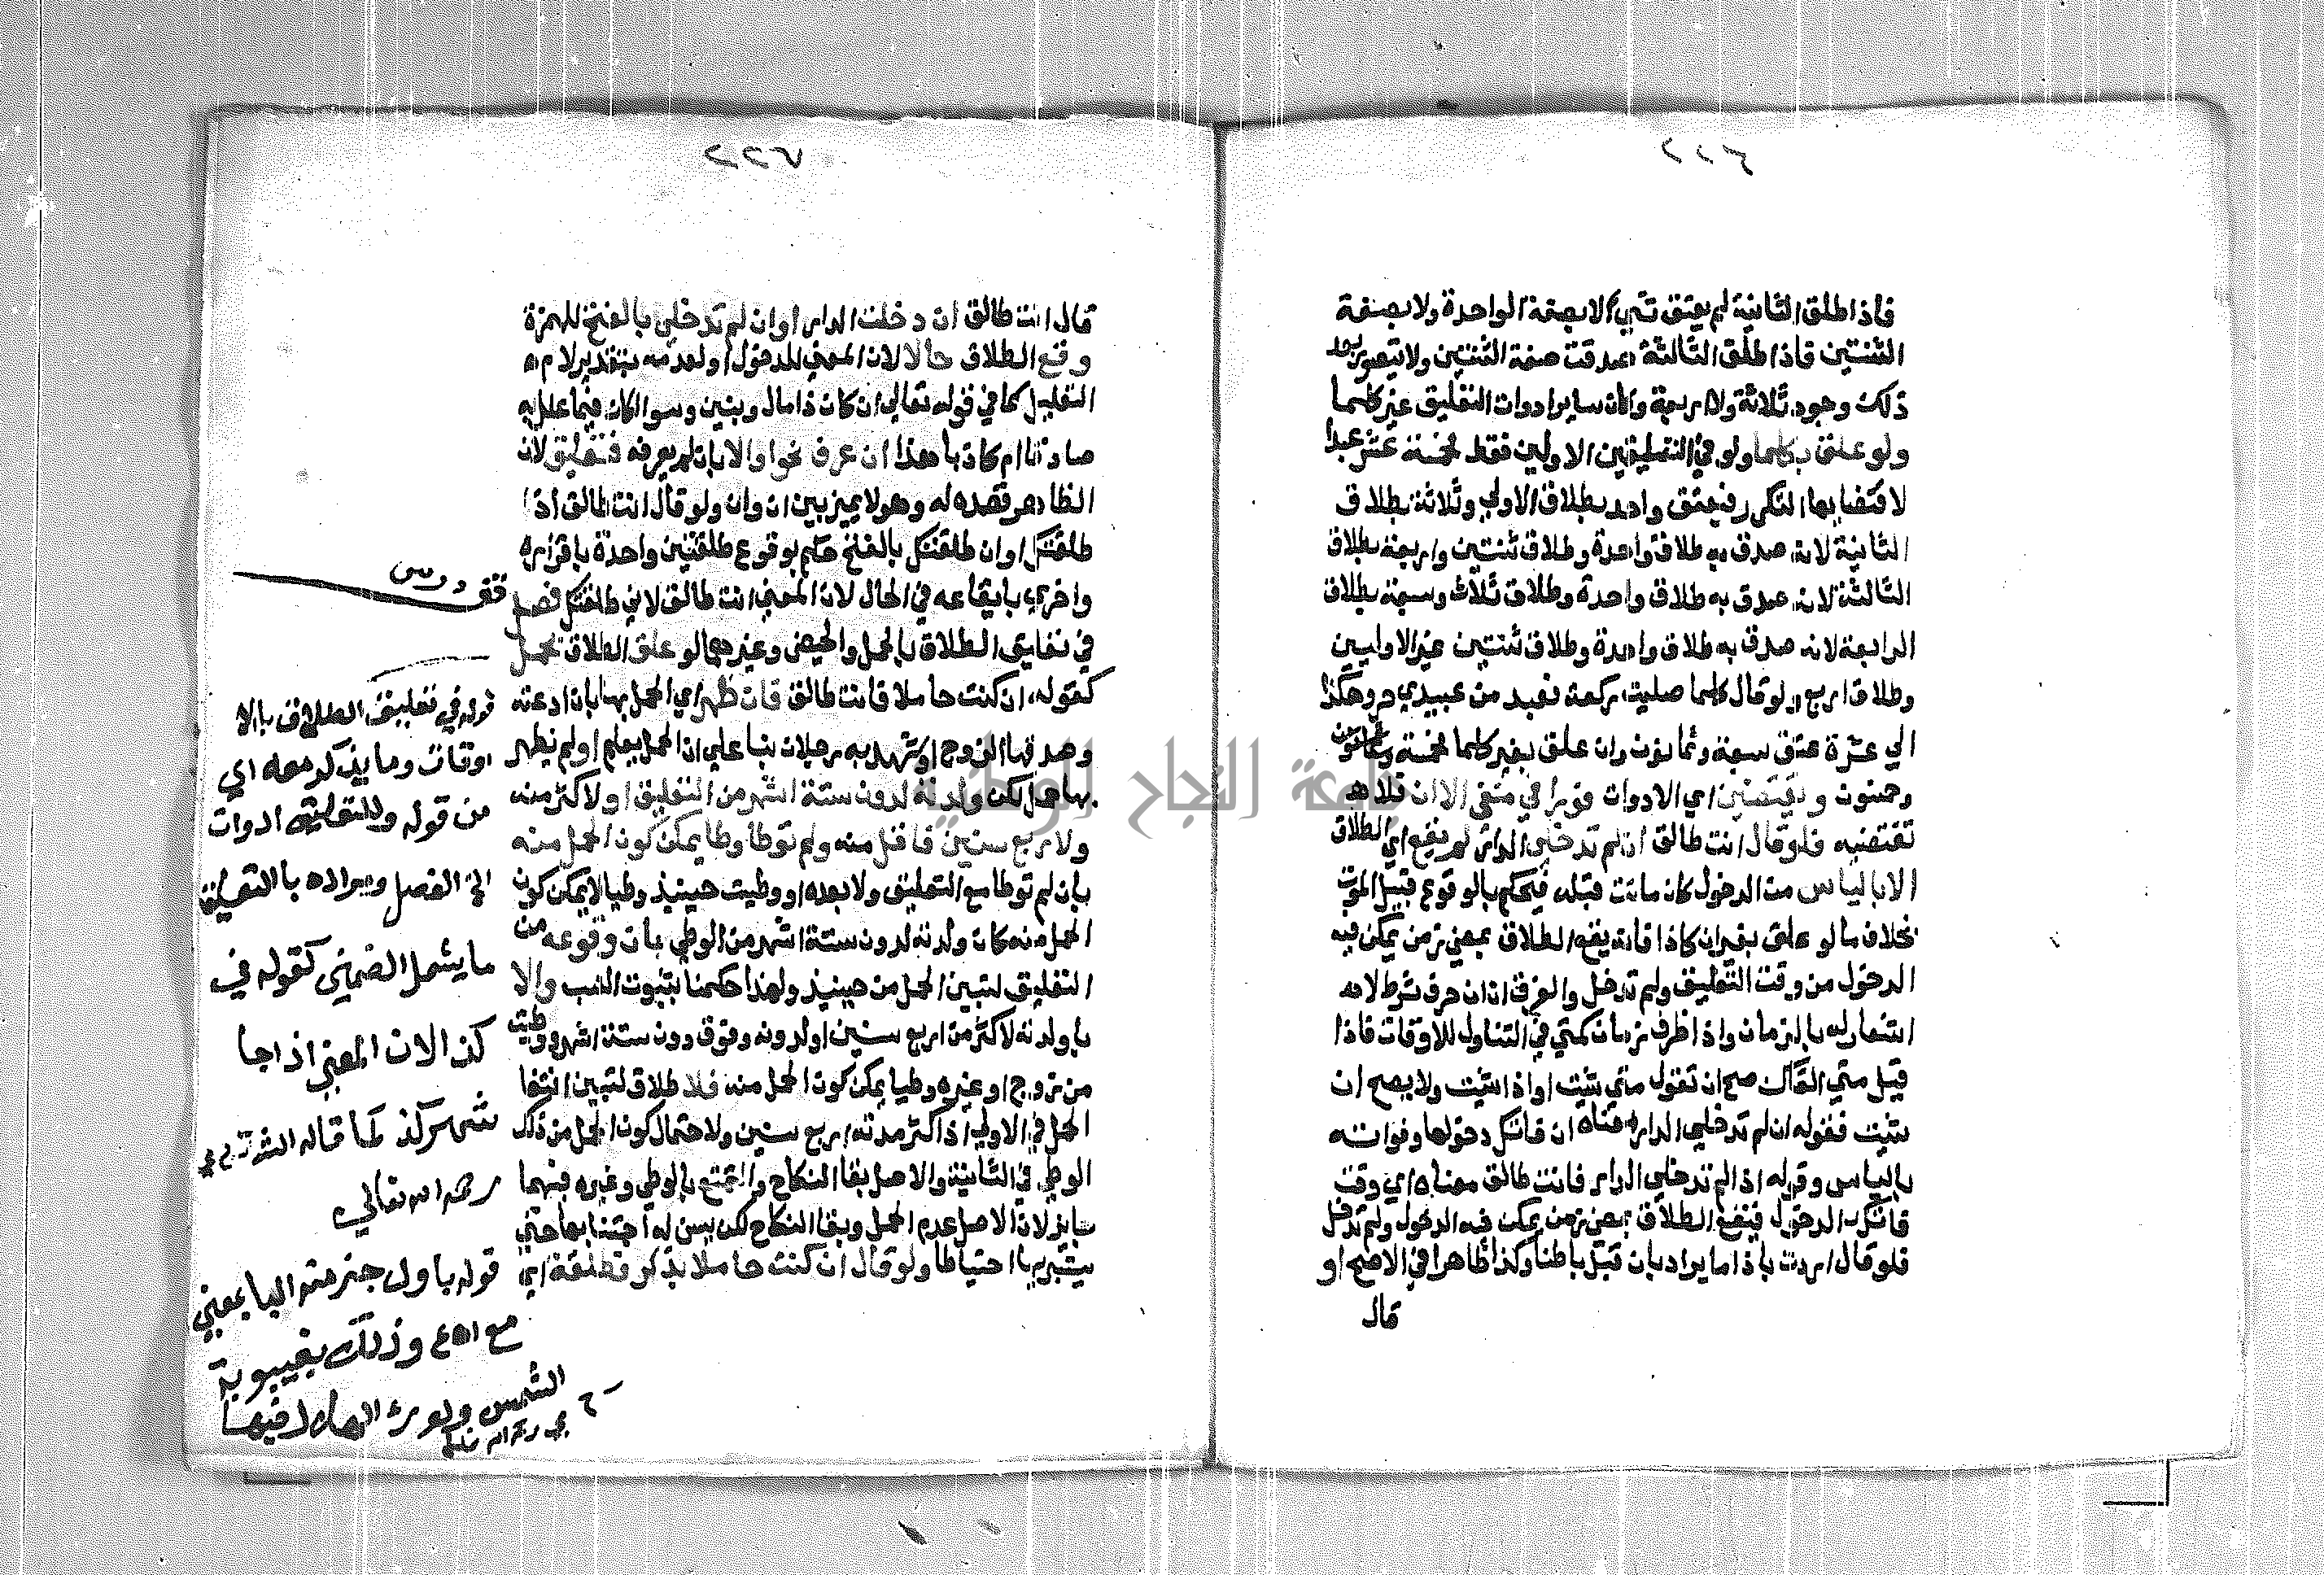 فاذا طلق الثانية لم يعتق شي لا بصفة الواحدة ولا بصفة
الثنتين فاذا طلق الثالثة صدقت صفة الثنتين ولا يتصور بعد
ذلك وجود ثلاثة والاربعة وكان ساير ادوات التعليق غير كلما
ولو علق بكلما ولو في التعليقين الاولين فقط فخمسة عشر عبدا
لاقتضايها التكرر فيعتق واحد بطلاق الاولي وثلاثة بطلاق
الثانية لانه صدق به طلاق واحدة وطلاق ثنتين واربعة بطلاق
الثالثة لانه صدق به طلاق واحدة وطلاق ثلاث وسبعة بطلاق
الرابعة لانه صدق به طلاق واحدة وطلاق ثنتين غير الاوليين
وطلاق اربع ولو قال كلما صليت ركعة فعبد من عبيدي حر وهكذا
الي عشرة عتق سبعة وثمانون وان علق بغير كلما فخمسة
وخمسون ويقتضين اي الادوات فورا في منفي الا ان فلا
تقتضيه فلو قال انت طالق ان لم تدخلي الدار لم يقع اي الطلاق
الا بالياس من الدخول كان ماتت قبله فيحكم بالوقوع قبيل الموت
بخلاف ما لو علق بغير ان كاذا فانه يقع الطلاق بمضي زمن يمكن فيه
الدخول من وقت التعليق ولم تدخل والفرق ان ان حرف شرط لا
اشعار له بالزمان واذا ظرف زمان كمتي في التناول للاوقات فاذا
قيل متي القاك صح ان تقول متي شيت او اذا شيت ولا يصح ان
شيت فقوله ان لم تدخلي الدار معناه ان فاتك دخولها وفواته
بالياس وقوله اذا لم تدخلي الدار فانت طالق معناه اي وقت
فاتك الدخول فيقع الطلاق بمضي زمن يمكن فيه الدخول ولم تدخل
فلو قال اردت باذا ما يراد بان قبل باطنا وكذا ظاهرا في الاصح او
قال
قال انت طالق ان دخلت الدار او ان لم تدخلي بالفتح للهمزة
وقع الطلاق حالا لان المعني للدخول او لعدمه بتقدير لام
التعليل كما في قوله تعالي ان كان ذا مال وبنين وسوا اكان فيما علل به
صادقا ام كاذبا هذا ان عرف نحوا والا بان لم يعرفه فتعليق لان
الظاهر قصده له وهو لا يميز بين ان وان ولو قال انت طالق اذ
طلقتك او ان طلقتك بالفتح حكم بوقوع طلقتين واحدة باقراره
واخري بايقاعه في الحال لان المعني انت طالق لاني طلقتك فصل
في تعليق الطلاق بالحمل والحيض وغيرهما لو علق الطلاق بحمل
كقوله ان كنت حاملا فانت طالق فان ظهر اي الحمل بها بان ادعته
وصدقها الزوج او شهد به رجلان بنا علي ان الحمل يعلم او لم يظهر
بها حمل لكن ولدته لدون ستة اشهر من التعليق او لاكثر منه
ولاربع سنين فاقل منه ولم توطا وطا يمكن كون الحمل منه
بان لم توطا مع التعليق ولا بعده او وطيت حينيذ وطيا لا يمكن كون
الحمل منه كان ولدته لدون ستة اشهر من الوطي بان وقوعه من
التعليق لتبين الحمل من حينيذ ولهذا حكمنا بثبوت النسب والا
بان ولدته لاكثر من اربع سنين او لدونه وفوق دون ستة اشهر ووطيت
من زوج او غيره وطيا يمكن كون الحمل منه فلا طلاق لتبين انتفا
الحمل في الاولي اذ اكثر مدته اربع سنين ولاحتمال كون الحمل من ذلك
الوطي في الثانية والاصل بقا النكاح والتمتع بالوطي وغيره فيهما
جايز لان الاصل عدم الحمل وبقا النكاح لكن يسن له اجتنابها حتي
يستبريها احتياطا ولو قال ان كنت حاملا بذكر فطلقة اي
قف درس
قوله في تعليق الطلاق بالا
اوقات وما يذكر معه اي
من قوله وللتعليق ادوات
الي الفصل ومراده بالتعليق
ما يشمل الضمني كقوله في
كذا لان المعني اذا جا
شهر كذا كما قاله
رحمه الله تعالي
قوله باول جزء منه البا بمعني
مع وذلك بغيبوبة
الشمس
رحمه الله